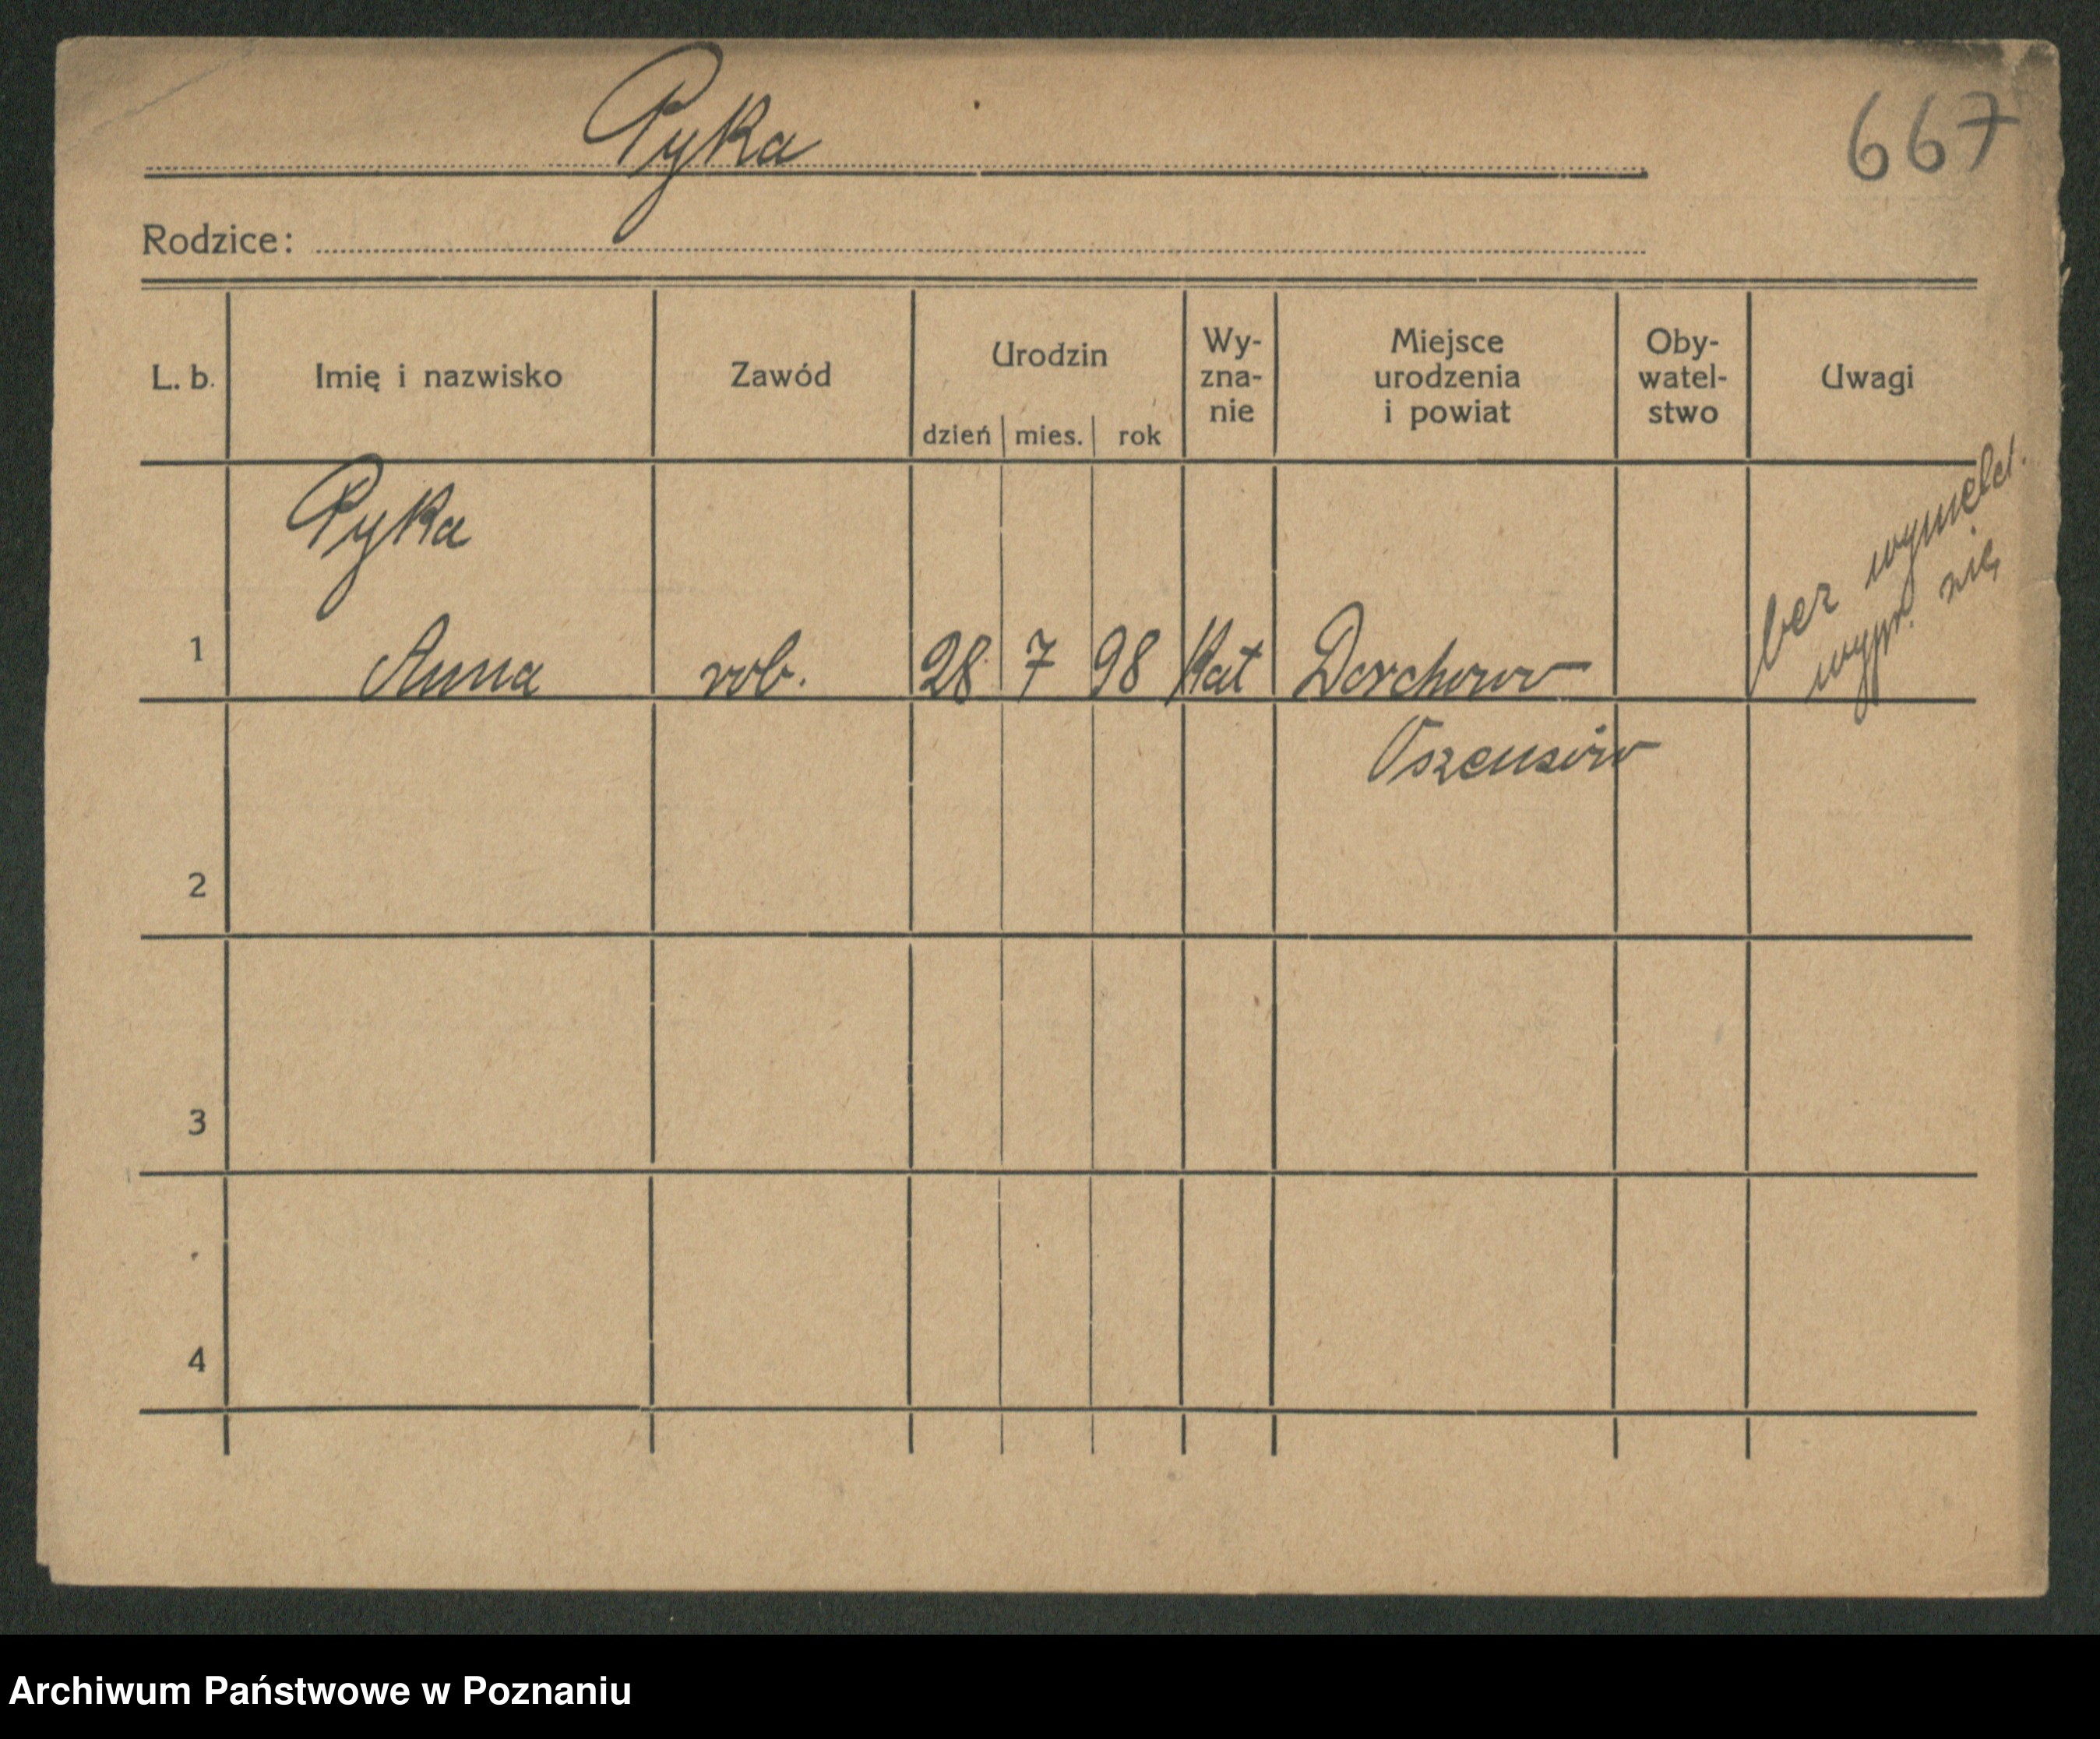 Pyka
667
Rodzice:
L. b. Imię i nazwisko Zawód Urodzin dzień mies. rok Wy-zna-nie Miejsce urodzenia i powiat Oby-watel-stwo Uwagi
Pyka
1 Anna rob. 28 7 98 Kat Dorchowo
bez wymeld.
wypr. się
2
3
4
Archiwum Państwowe w Poznaniu